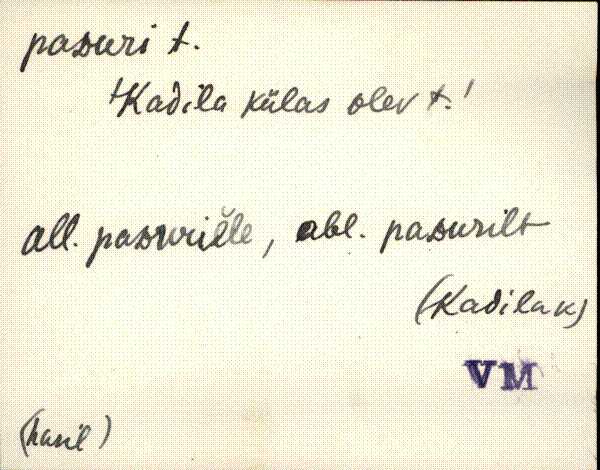 pasuri t.
'Kadila külas olev t.'
all. pasurille, abl. pasurilt
(Kadila k)
VM
(haril)